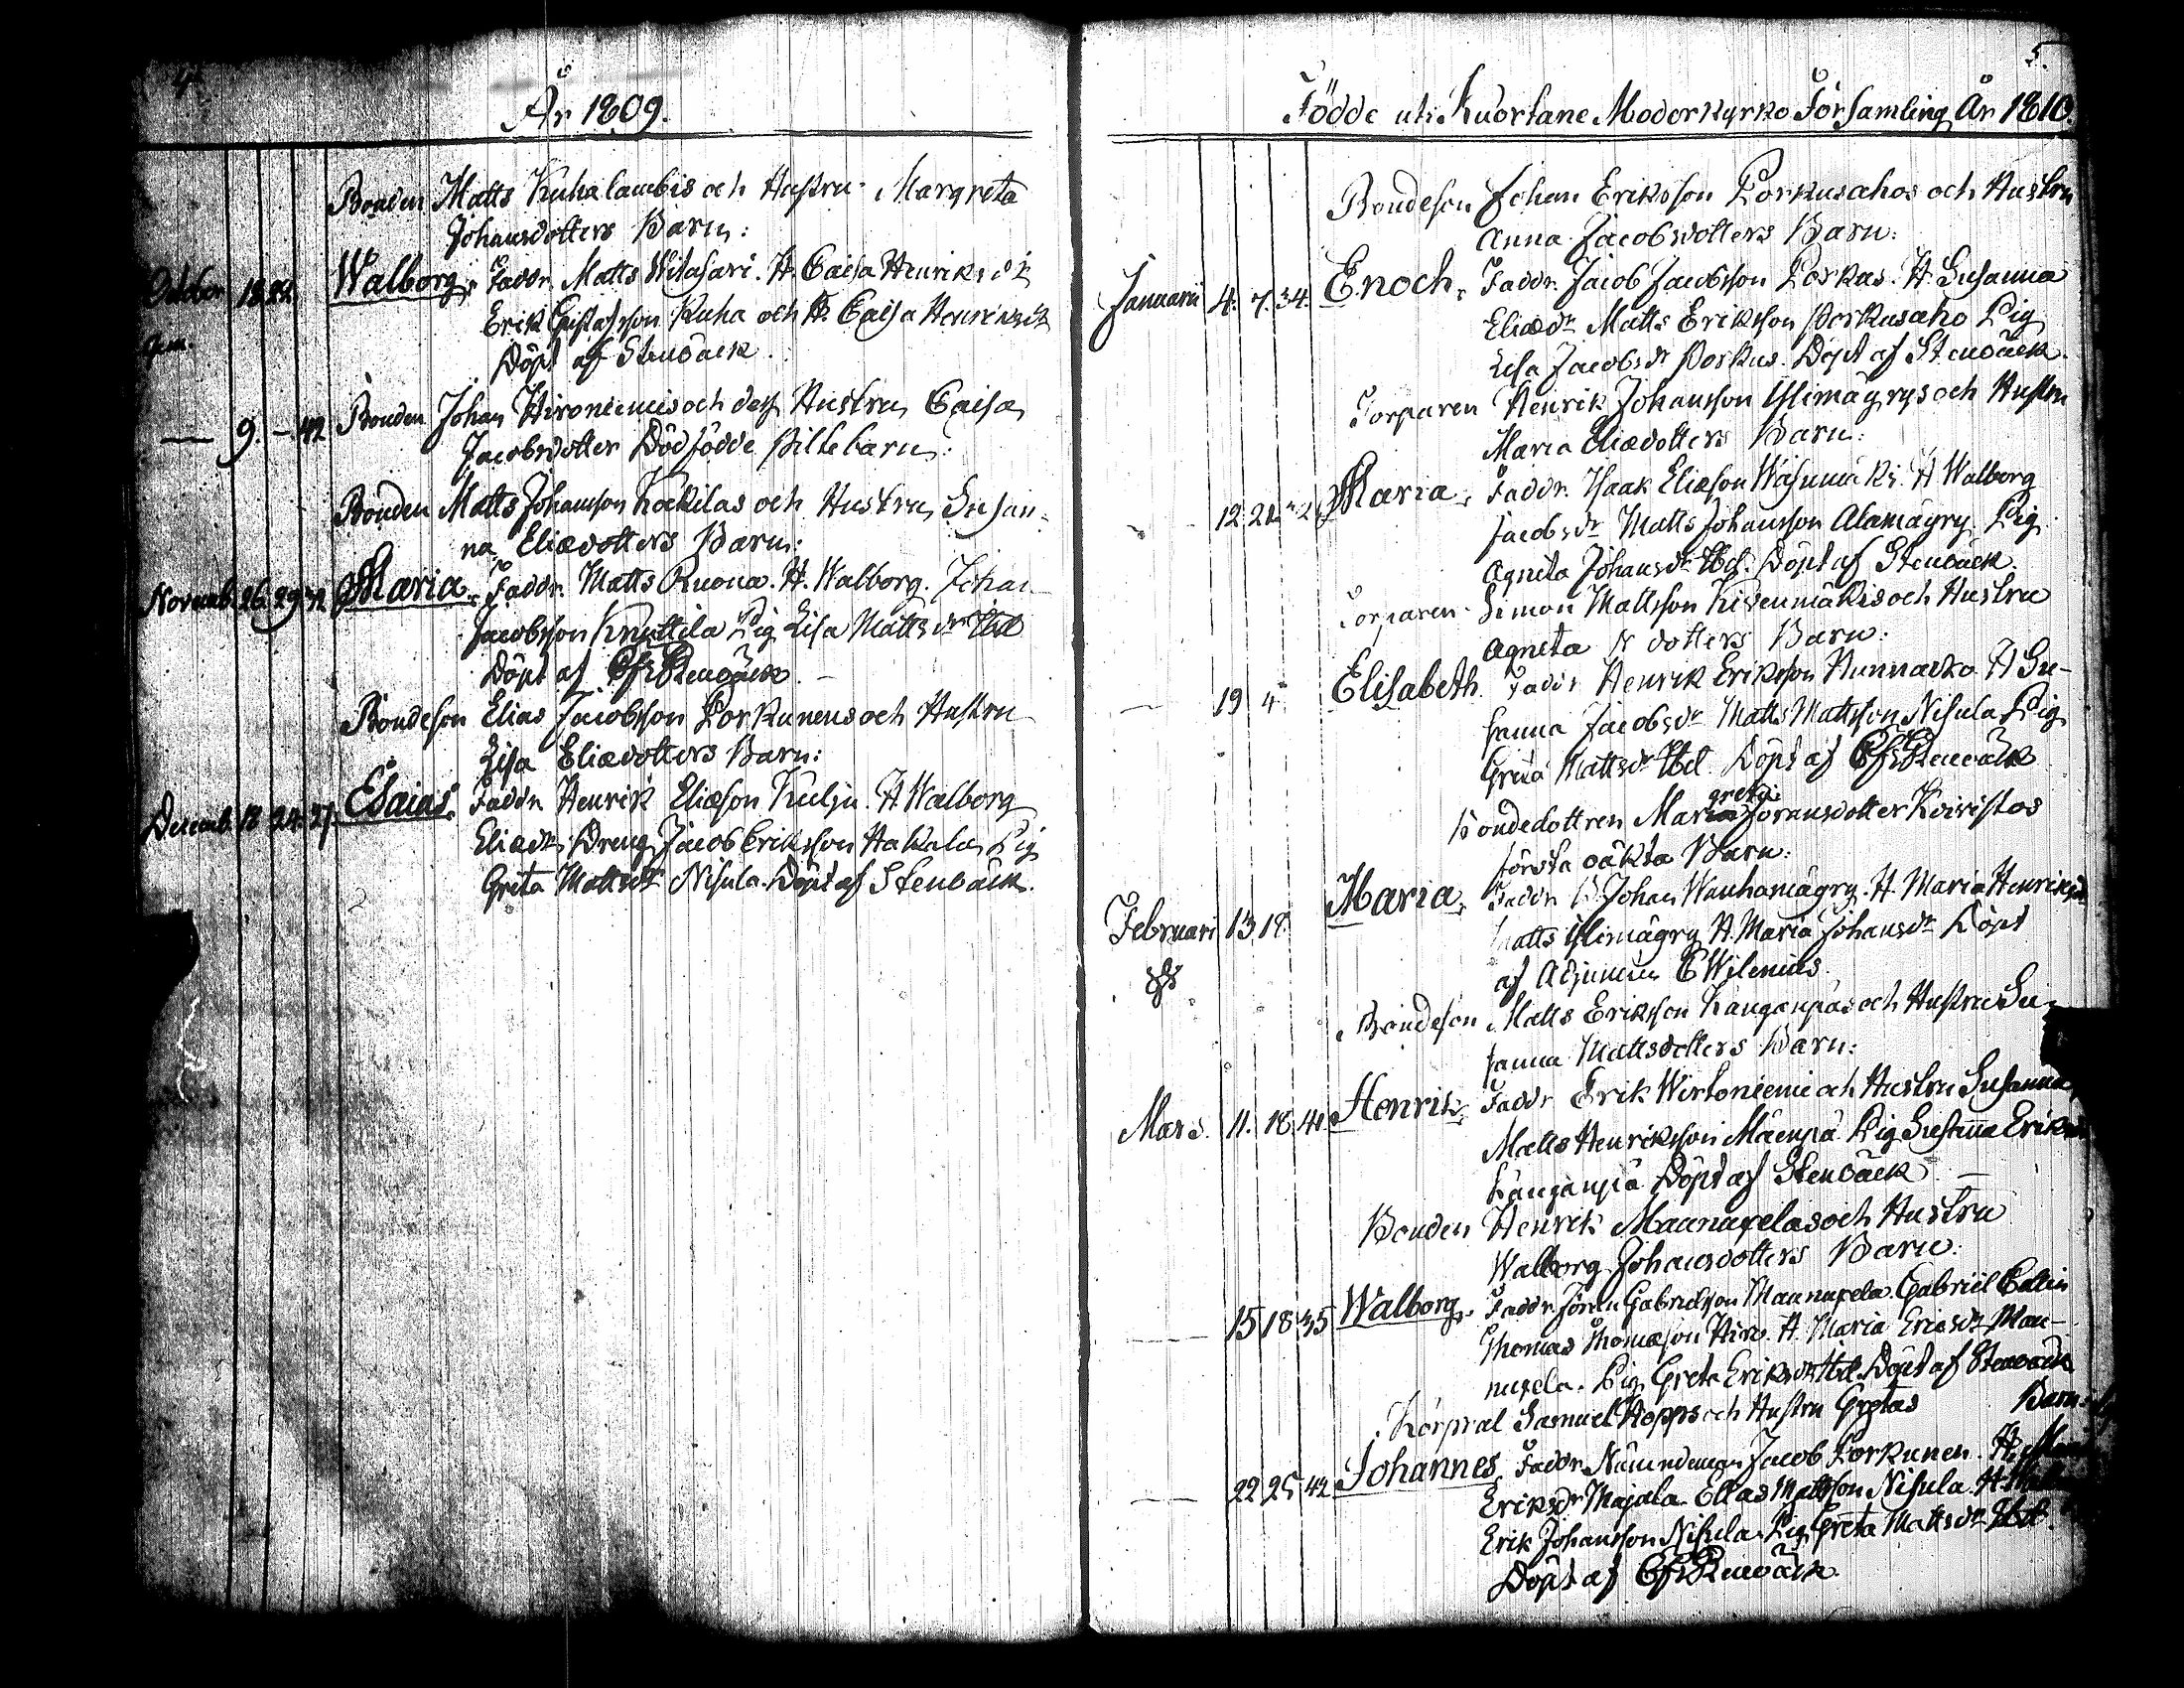 4.
År 1809.
Bonden Matts Kuhalambis och Hustru Margreta
Johansdotters Barn:
October 18. 22. Walborg, Faddr. Matts Witasari. H. Caisa Henriksdr
Erik Gustafsson Kuha och H. Caisa Henriksdr
Döpt af Stenbäck.
Bonden Johan Hironiemis och dess Hustru Caisa
— 9. — 42
Jacobsdotter Dödfödde piltebarn:
Bonden Matts Johansson Kockilas och Hustru Susan-
na Eliædotters Barn:
Novemb. 26. 29. Maria. Faddr. Matts Ruona. H. Walborg. Johan
Jacobsson Knuttila Pig. Lisa Mattsdr Ibd
Döpt af C. F. Stenbäck. —
Bondeson Elias Jacobsson Porkunens och Hustru
Lisa Eliædotters Barn:
Decemb. 18. 24. 27. Esaias. Faddr. Henrik Eliæson Kulju. H. Walborg
Eliædr. Dreng. Jacob Eriksson Hakala, Pig.
Greta Mattsdr Nisula. Döpt af Stenbäck.
5.
Födde uti Kuortane Moderkyrko Församling År 1810.
Bondeson Johan Eriksson Porkusahos och Hustru
Anna Jacobsdotters Barn:
Januarii 4. 7. 34. Enoch, Faddr. Jacob Jacobsson Porkus. H. Susanna
Eliædr Matts Eriksson Porkusaho Pig.
Lisa Jacobsdr Porkus. Döpt af Stenbäck.
Torparen Henrik Johansson Ylimägrys och Hustru
Maria Eliædotters Barn:
12. 21. Maria, Faddr. Isaak Eliæson Wäsumäki. H. Walborg
Jacobsdr Matts Johansson Alamägry. Pig.
Agneta Johansdr Ibd. Döpt af Stenbäck.
Torparen Simon Mattsson Kivenmäkis och Hustru
Agneta N dotters Barn:
— 19 4 Elisabeth. Faddr Henrik Eriksson Hunnakko. H Su-
sanna Jacobsdr Matts Mattsson Nisula Pig.
Greta Mattsdr Ibd. Döpt af C. F. Stenbäck
greta
Bondedottren Maria Joransdotter Koivistos
första oäkta Barn:
Februari 13 18. Maria, Faddr B. Johan Wanhamägry. H. Maria Henriksdr
Matts Ylimägry H. Maria Johansdr Döpt
af Adjuncten E Wilenius.
Bondeson Matts Eriksson Kanganpäs och Hustru Su-
sanna Mattsdotters Barn:
Mars. 11. 18. 41 Henrik, Faddr Erik Wirtoniemi och Hustru Susanna
Matts Henriksson Mäenpä. Pig Susanna Eriksdr
Kanganpä Döpt af Stenbäck —
Bonden Henrik Maanupelas och Hustru
Walborg Johansdotters Barn:
— 15 18 35 Walborg. Faddr. Jöran Gabrielsson Maanupela. Gabriel
Thomas Thomæson Hiro. H. Maria Ericsdr Maa-
nupela. Pig. Greta Eriksdr Ibd. Döpt af Stenbäck
Korpral Samuel Hopps och Hustru Gretas Barn:
— 22 25 42 Johannes, Faddr Nämndeman Jacob Porkunen. H.
Eriksdr Majala. Elias Mattsson Nisula. H.
Erik Johansson Nisula. Pig. Greta Mattsdr Ibd.
Döpt af C. F. Stenbäck.